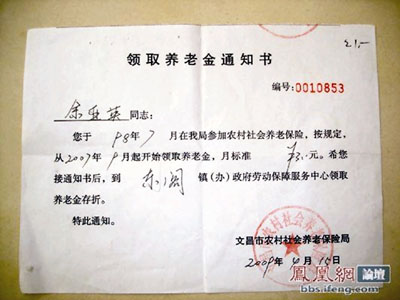 领取养老金通知书
编号:0010853
余亚英 同志:
您于 98年7月在我局参加农村社会养老保险，按规定，
从2007年9月起开始领取养老金，月标准 元。希您
接通知书后，到 东阁 镇(办)政府劳动保障服务中心领取
养老金存折。
特此通知。
文昌市农村社会养老保险局
2009年4月15日
鳳凰網 論壇
bbs.ifeng.com